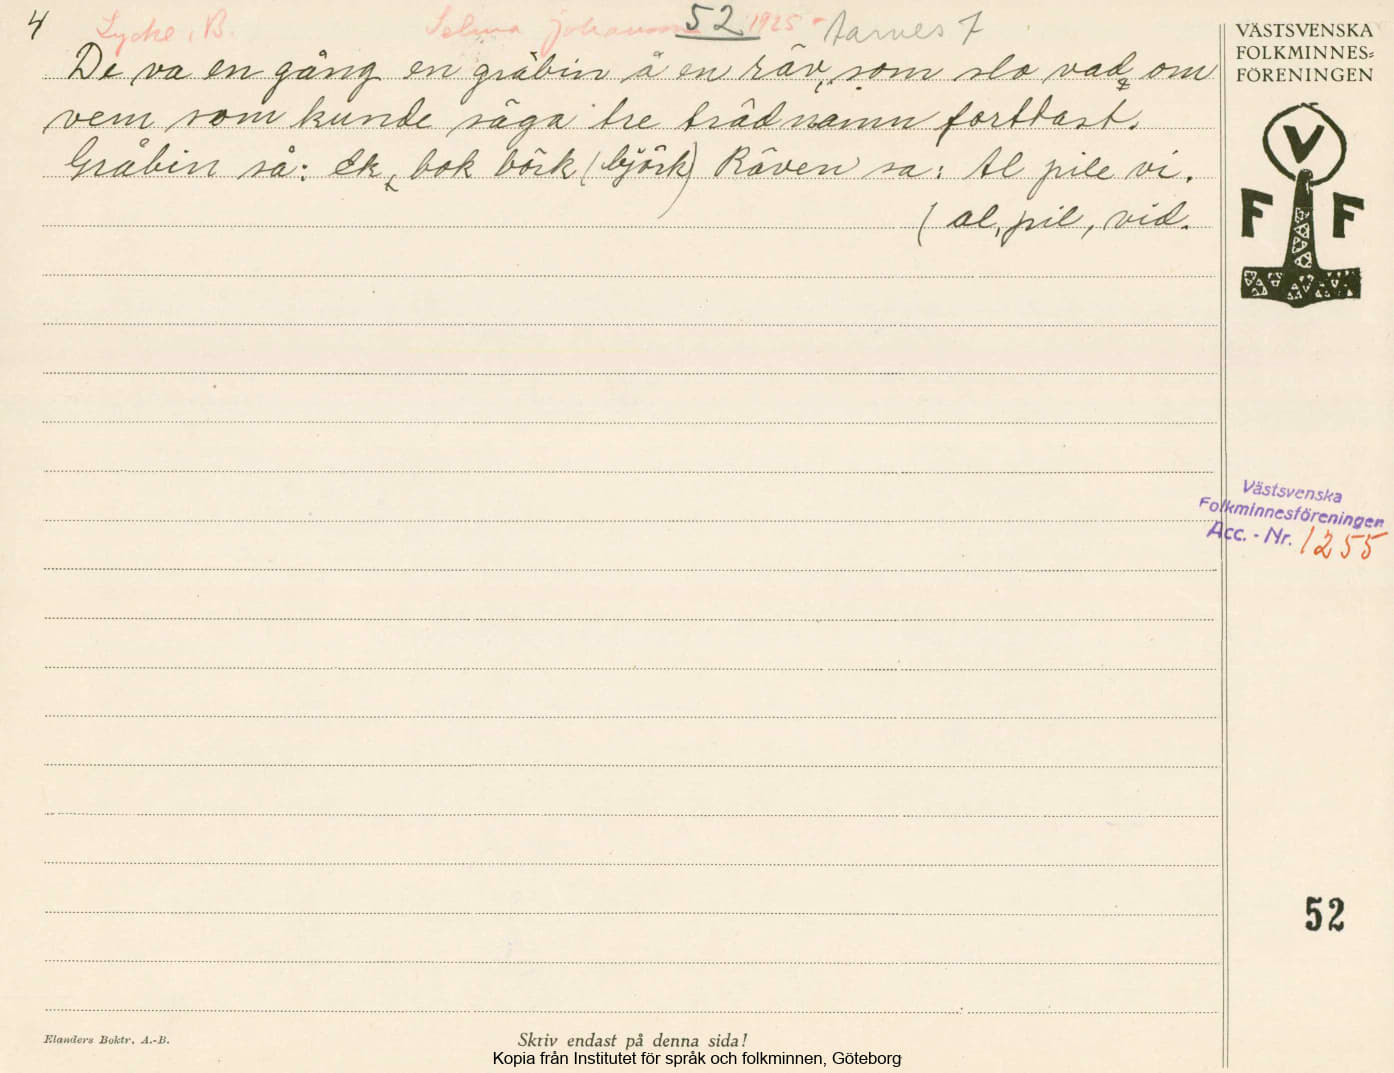 4
Lycke, B. Selma Johansson 52 1925 - Aarnes 7
De va en gång en gråbin å en räv, som slo vad om
vem som kunde säga tre trädnamn forttast.
Gråbin så: Ek, bok börk (björk) Räven sa: Al pile vi.
( al, pil, vid.
VÄSTSVENSKA
FOLKMINNES=
FÖRENINGEN
V
F F
Västsvenska
Folkminnesföreningen
Acc. - Nr. 1255
52
Elanders Boktr. A.-B.
Skriv endast på denna sida!
Kopia från Institutet för språk och folkminnen, Göteborg